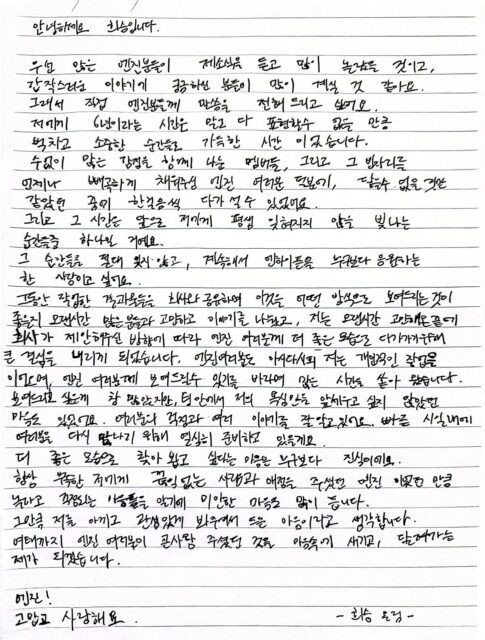 안녕하세요 희승입니다.
우선 많은 엔진분들이 제소식을 듣고 많이 놀랐을 것이고,
갑작스러운 이야기에 궁금하신 분들이 많이 계실 것 같아요.
그래서 직접 엔진분들께 말씀을 전해 드리고 싶어요.
저에게 6년이라는 시간은 말로 다 표현할수 없을 만큼
벅차고 소중한 순간들로 가득한 시간 이었습니다.
수없이 많은 감정을 함께 나눈 멤버들, 그리고 그 빈자리를
언제나 빼곡하게 채워주신 엔진 여러분 덕분에, 닿을수 없을 것만
같았던 꿈에 한걸음씩 다가설 수 있었어요.
그리고 그 시간은 앞으로 저에게 평생 잊혀지지 않을 빛나는
순간들중 하나일 거예요.
그 순간들을 절대 잊지 않고, 계속해서 엔하이픈을 누구보다 응원하는
한 사람이고 싶어요.
그동안 작업한 결과물들을 회사와 공유하며 이것을 어떤 방식으로 보여드리는것이
좋을지 오랜시간 많은 분들과 고민하고 이야기를 나눴고, 저는 오랜시간 고민해온끝에
회사가 제안해주신 방향에 따라 엔진 여러분께 더 좋은 모습으로 다가가기위해
큰 결심을 내리게 되었습니다. 엔진여러분도 아시다시피 저는 개인적인 작업을
이어오며, 엔진 여러분께 보여드릴수 있기를 바라며 많은 시간을 쏟아 왔습니다.
보여드리고 싶은게 참 많았지만, 팀 안에서 저의 욕심만을 앞세우고 싶지 않았던
마음도 있었어요. 여러분의 걱정과 여러 이야기를 잘 알고있어요. 빠른 시일내에
여러분을 다시 만나기 위해 열심히 준비하고 있을게요.
더 좋은 모습으로 찾아 뵙고 싶다는 마음은 누구보다 진심이에요.
항상 부족한 저에게 끊임없는 사랑과 애정을 주셨던 엔진 이었던 만큼
놀라고 걱정되는 마음들을 알기에 미안한 마음도 많이 듭니다.
그만큼 저를 아끼고 관심있게 봐주셔서 드는 마음이라고 생각합니다.
여태까지 엔진 여러분이 큰사랑 주셨던 것을 마음속에 새기고, 달려가는
제가 되겠습니다.
엔진!
고맙고 사랑해요.
- 희승 올림 -